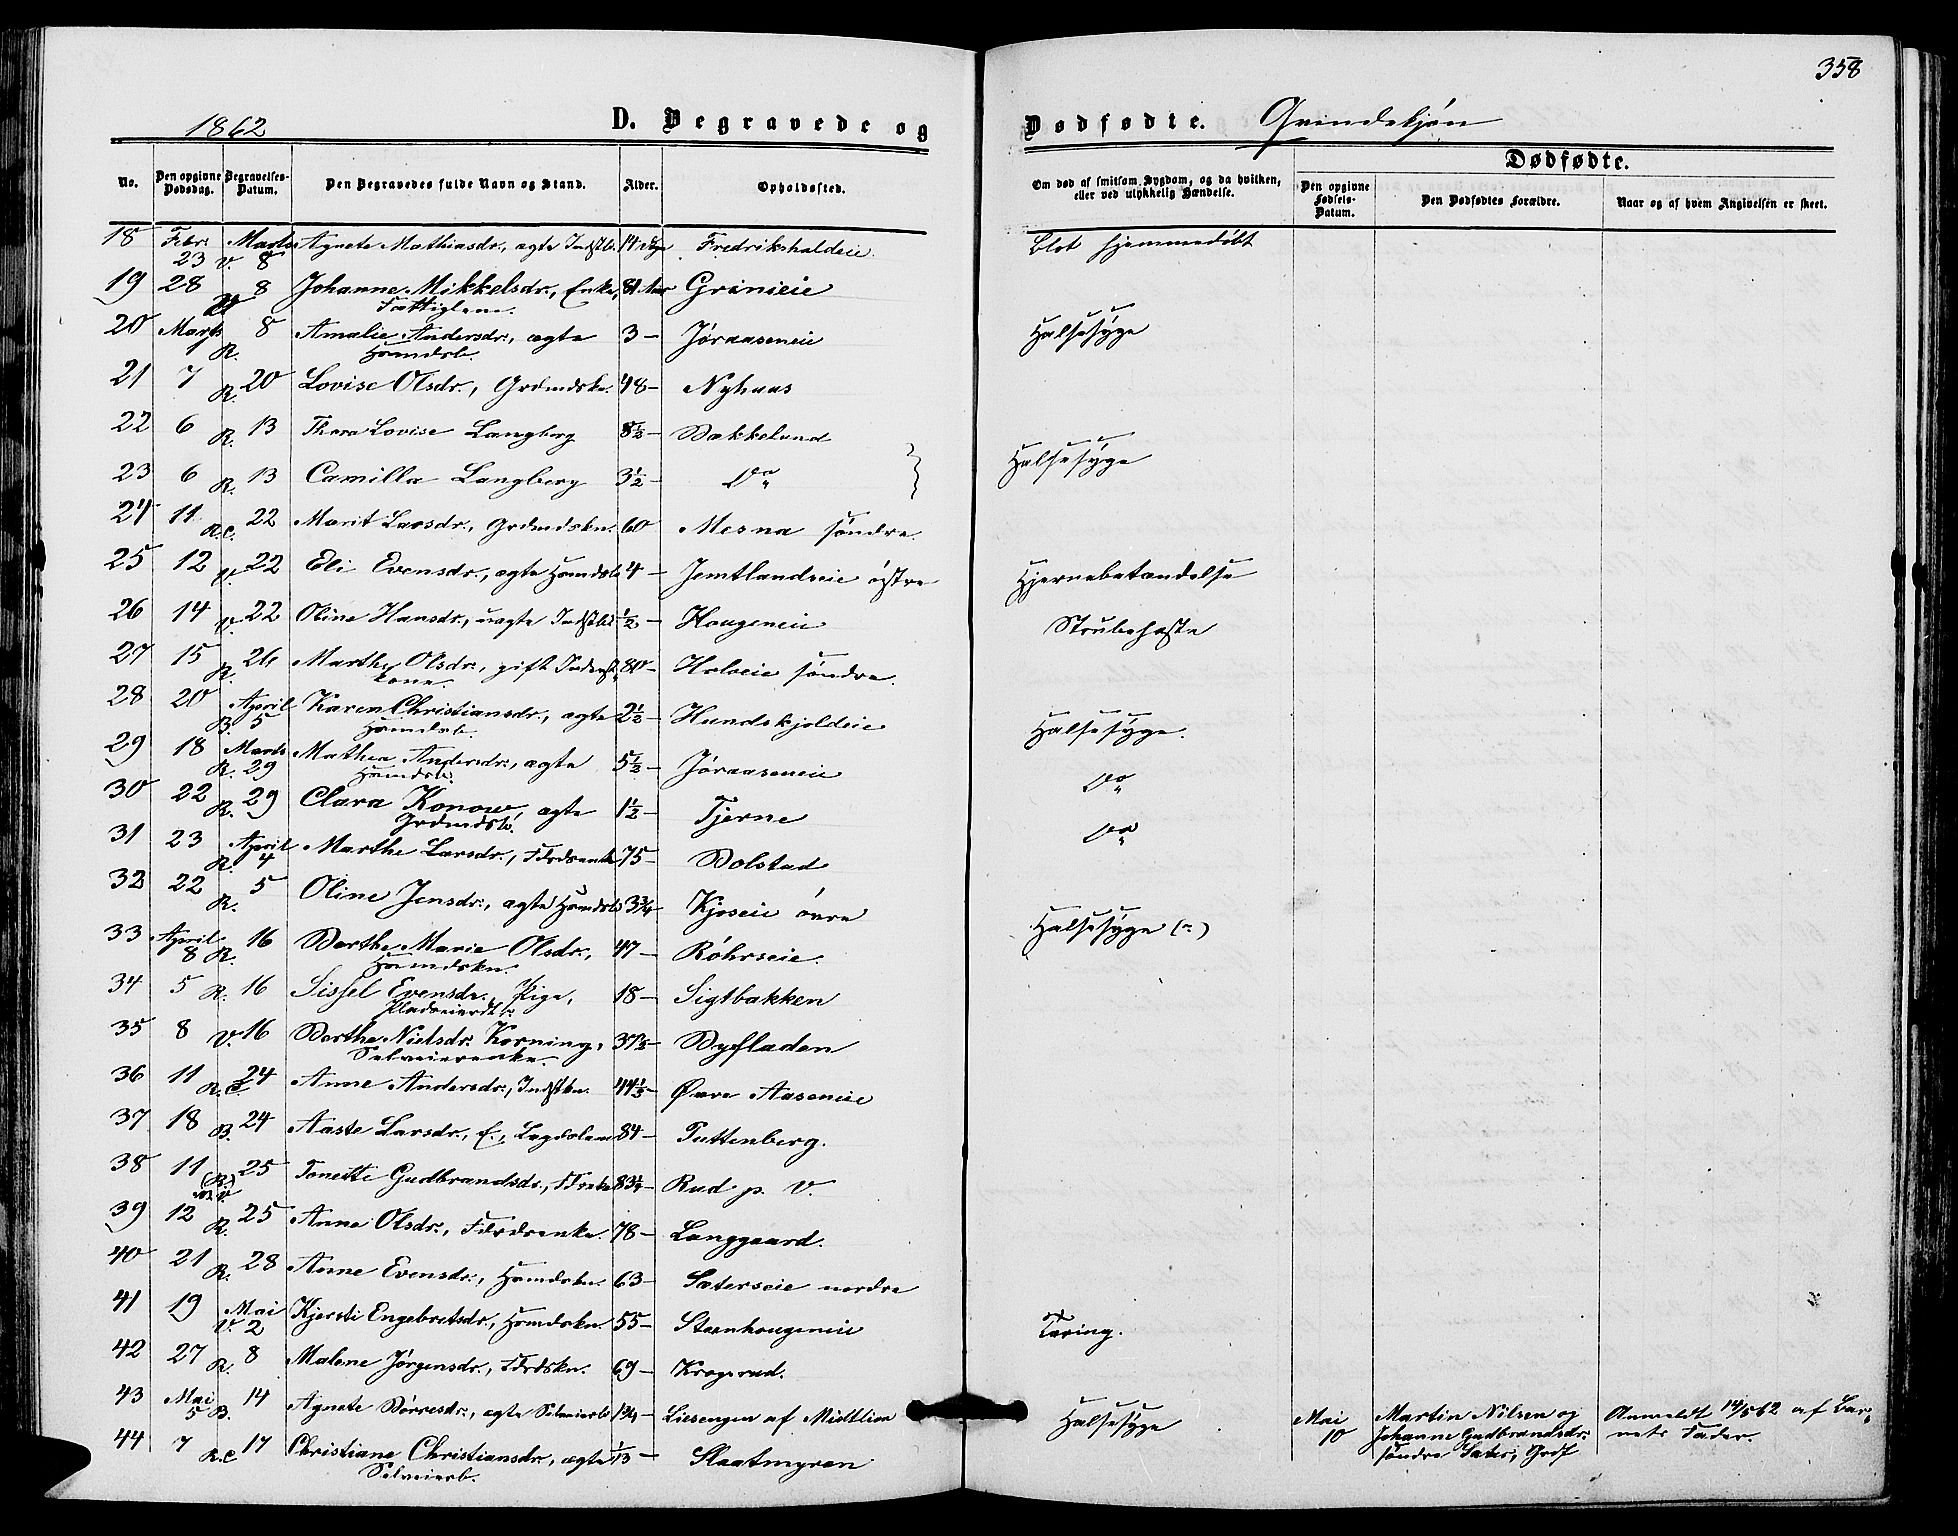 358
1862 D. Begravede og Dødfødte. Qvindekjøn
Dødfødte.
No. Den opgivne Dødsdag. Begravelses-Datum. Den Begravedes fulde Navn og Stand. Alder. Opholdssted. Om død af smitsom Sygdom, og da hvilken, eller ved ulykkelig Hændelse. Den opgivne Fødsels-Datum. Den Dødfødtes Forældre. Naar og af hvem Angivelsen er skeet.
18 Febr. 23 Marts V. 8 Agnete Mathiasdr., ægte 14 Dage Fredrikshaldeie. blot hjemmedöbt
19 28 8 Johanne Mikkelsdr., Enke, 81 Aar Grönieie
Fattiglem.
20 Marts R. 8 Amalie Andersdr., ægte 3 — Jøraaseneie Halssyge
Hsmdsb.
21 7 R. 20 Lovise Olsdr., Grdmdskn. 48 — Nyhuus
22 6 R. 13 Thora Lovise Langberg 8½ — Bakkelund
23 6 R. 13 Camilla Langberg 3½ — Do Halsesyge
24 11 R.C. 22 Marit Larsdr., Grdmdskn. 60 Mesna söndre
25 12 V. 22 Eli Evensdr., ægte Hsmdsb 4 — Jemtlandseie östre Hjernebetændelse
26 14 V. 22 Oline Hansdr., uægte ½ — Haugeneie Strubehoste
27 15 R. 26 Marthe Olsdr., gift 80 — Holseie söndre.
kone.
28 20 April B. 5 Karen Christiansdr., ægte 2½ — Hundskjoldeie Halsesyge.
Hsmdsb.
29 18 Marts R. 29 Mathea Andersdr., ægte 5½ — Jøraaseneie Do
Hsmdsb.
30 22 R. 29 Clara Konow ægte 1½ — Tjerne Do
Grdmdsb.
31 23 April R. 4 Marthe Larsdr., 75 — Bolstad
32 22 R. 5 Oline Jensdr., ægte Hsmdsb 3¾ Kjoseie övre Halsesyge (?)
33 April 8 R. 16 Berthe Marie Olsdr., 47 — Röhrseie.
Hsmdskn.
34 5 R. 16 Sissel Evensdr., Pige, 18 — Sigtbakken
35 8 V. 16 Berthe Nielsdr. Korning, 37½ — Bysladen
Selveierenke.
36 11 R.C. 24 Anne Andersdr., Indstkn. 44½ — Øvre Aaseneie
37 18 B. 24 Aaste Larsdr., E., Lægdslem 84 — Puttenberg.
38 11 (R.) V. 25 Tonette Gudbrandsdr., 83¼ Rud p. V.
39 12 R. 25 Anne Olsdr., 78 — Langgaard.
40 21 R. 28 Anne Evensdr., Hsmdskn. 63 — Sæterseie nordre
41 19 Mai V. 2 Kjersti Engebretsdr., Hsmdskn. 55 — Steenhaugeneie Tæring.
42 27 R. 8 Malene Jørgensdr., 69 — Kragsrud.
43 Mai 5 B. 14 Agnete Børresdr., ægte Selveierb 1¾ — Liesengen af Midtlien Halsesyge Mai 10 Martin Nilsen og Johanne Gudbrandsdr. söndre Sæter, Grdf Anmeldt 14/5 62 af Barnets Fader.
44 7 R.C 17 Christiane Christiansdr., ægte Slaatmyren
Selveierb.